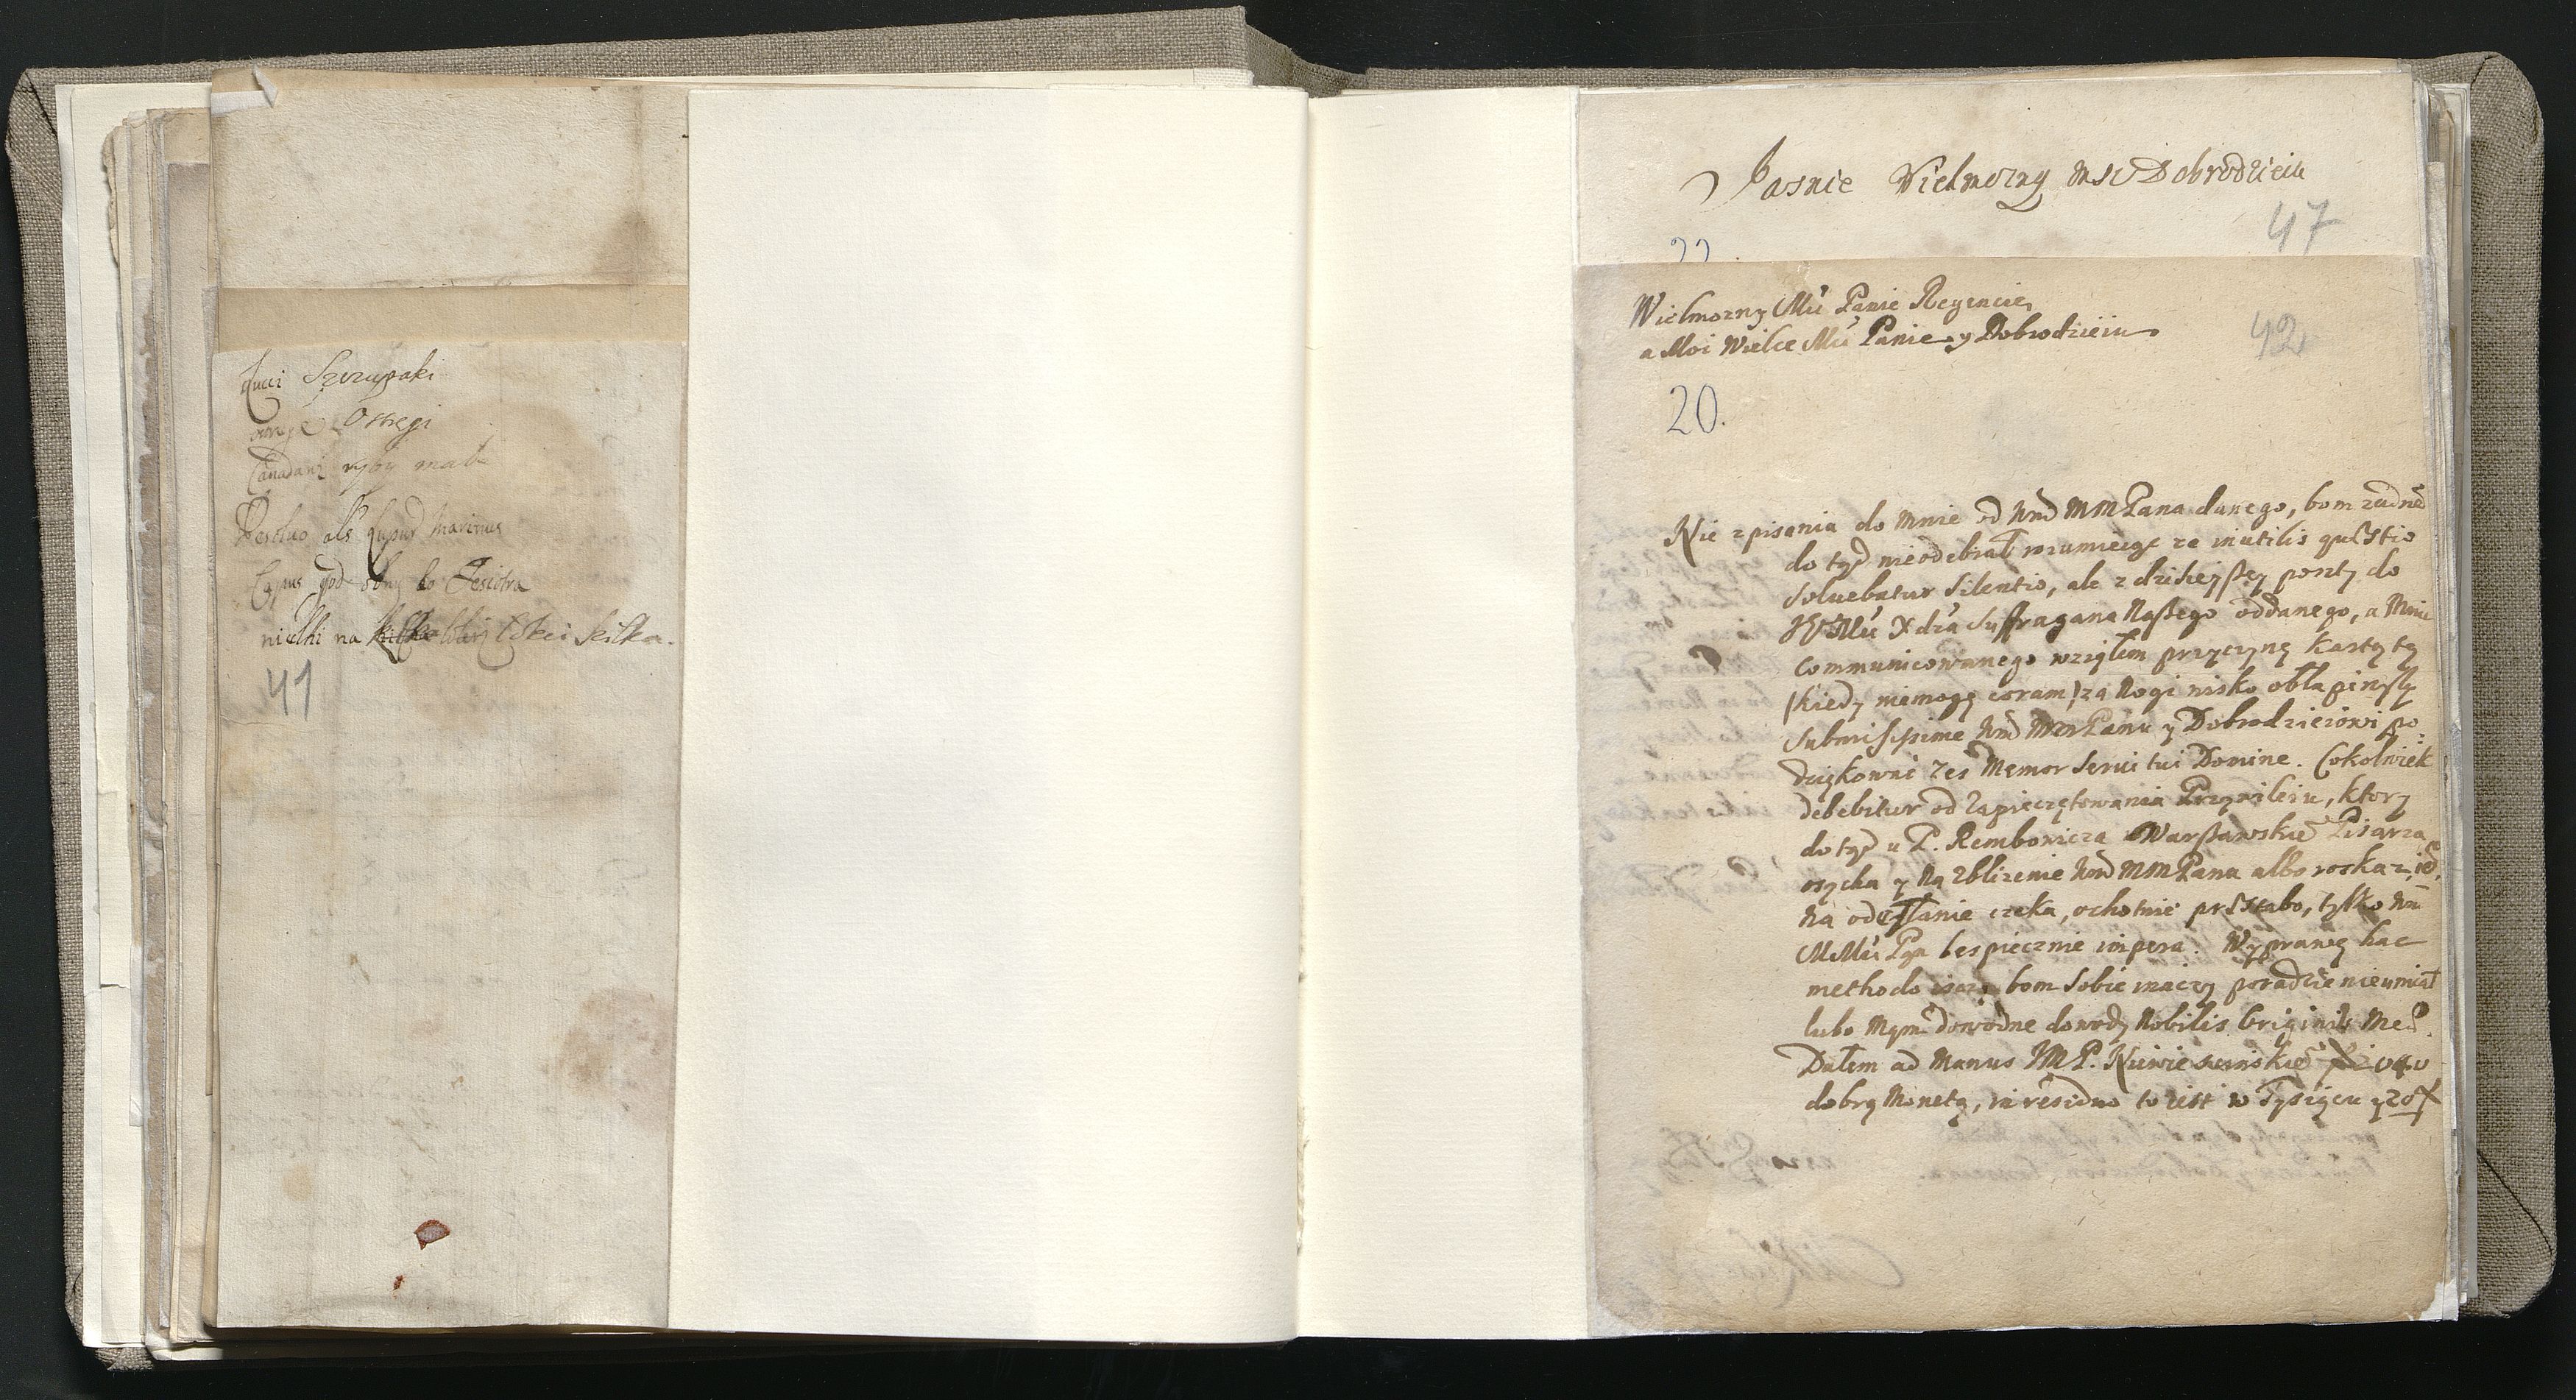 Lucci Szczupaki
Ostregi
Canadani ryby małe
als Lupus Marinus
Lapus pod bo Jesiotra
nielki na kilka.
41
Jasnie Wielmozny MSC Dobrodzieiu
47
22.
Wielmozny Mći Panie Regencie,
a Moi Wielce Mći Panie y Dobrodzieiu
42
20.
Nie z pisania do mnie od Wmć MMPana danego, bom zadnego
do tych nieodebrał rozumieiąc ze inutilis quęstio
Soluebatur Silentio, ale z dzisieyszey poszty do
JW Mći Xdza Suffragana Naszego oddanego, a Mnie
Communicowanego wziąłem przyczynę Kartą tą
(kiedy niemogę coram) za Nogi nisko obłapiwszy
Submissisime Wmć MMPanu y Dobrodzieiowi po,
dziękować zes Memor Serui tui Domine. Cokolwiek
debebitur od Zapieczętowania Przywileiu, ktory
do tych u P. Rembowicza Warszawskiego Pisarza
oczeka y Na zblizenie Wmć MMPana albo roskaz ieo,
Na odesłanie czeka, ochotnie pręstabo, tylko Wm
MMći Pan bespiecznie impera. Wyprawę hac
methodo bom Sobie inaczey poradzić nieumiał
lubo Mam dowodne dowody Nobilis Originis Meæ.
Dałem ad Manus JMP.
dobrą Monetą, in residuo to iest w Tysiącu y 20